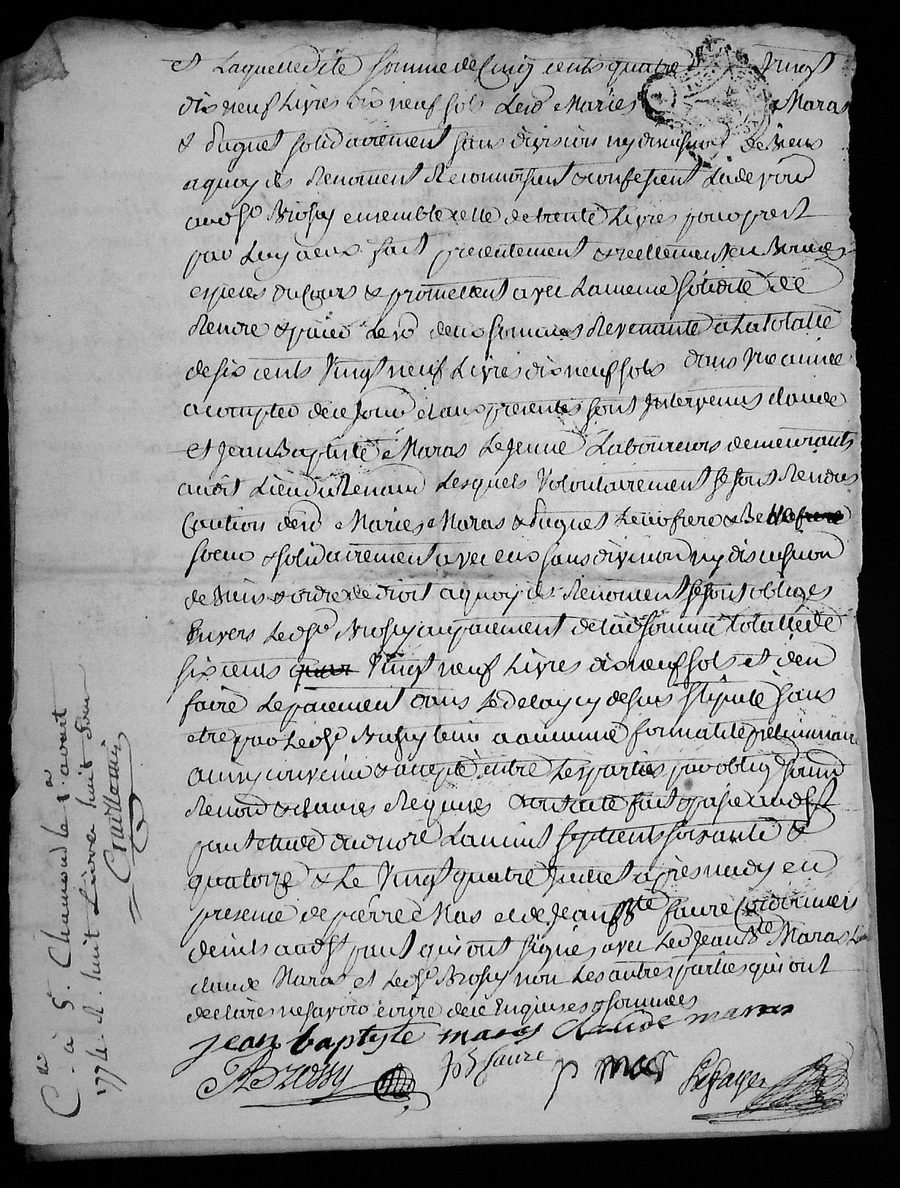 et Laquelledite Somme de Cinq cents quatre Vingt
dix neuf Livres dix neuf sols Lesd Maries Maras
& Paquet solidairement sans division ny discussion de biens
aquoy ils Renoncent Reconnoissent & confessent La devoir
audsr Brossy ensemble celle de trente Livres pour prest
par Luy aeux fait presentement & reellement en Bonnes
especes du Cours & promettent avec La meme solidité de
Rendre & paier Lesd deux sommes Revenante a La totalle
de six cents Vingt neuf Livres dix neuf sols dans Une année
a compter de ce Jour et aux presentes sont Intervenus claude
et Jean Baptiste Maras Le Jeune Laboureurs demeurants
audit Lieu du Renaud Lesquels Volontairement se sont Rendus
Caution desd Maries Maras & Paquet Leur frere & Belle
soeur & solidairement avec eux sans division ny discussion
de biens & ordre de droit aquoy ils Renoncent se sont obligés
Envers Ledsr Brossy au paiement de Lad somme totalle de
six cents Vingt neuf Livres dix neuf sols et d'en
faire Le paiement dans Le delay cy dessus stipulé sans
etre par Ledsr Brossy tenu a aucune formalité preliminaire
ainsy convenu & accepté entre Les parties par oblig soumd
Renond & clauses Requises & passé audst
paul etude du nore Lan mil sept cents soixante &
quatorze & Le Vingt quatre Juillet apres midy en
presence de pierre Mas et de Jean Bte faure Cordonniers
dud st paul qui ont signes avec Led Jean Bte Maras Le
claude Maras et Ledsr Brossy non Les autres parties qui ont
declaré ne savoir ecrire de ce Enquises & sommées
jean baptyste maras claude maras
Brossy JB faure p mas
Clé à St. Chamond le août
1774 Livres huit sous